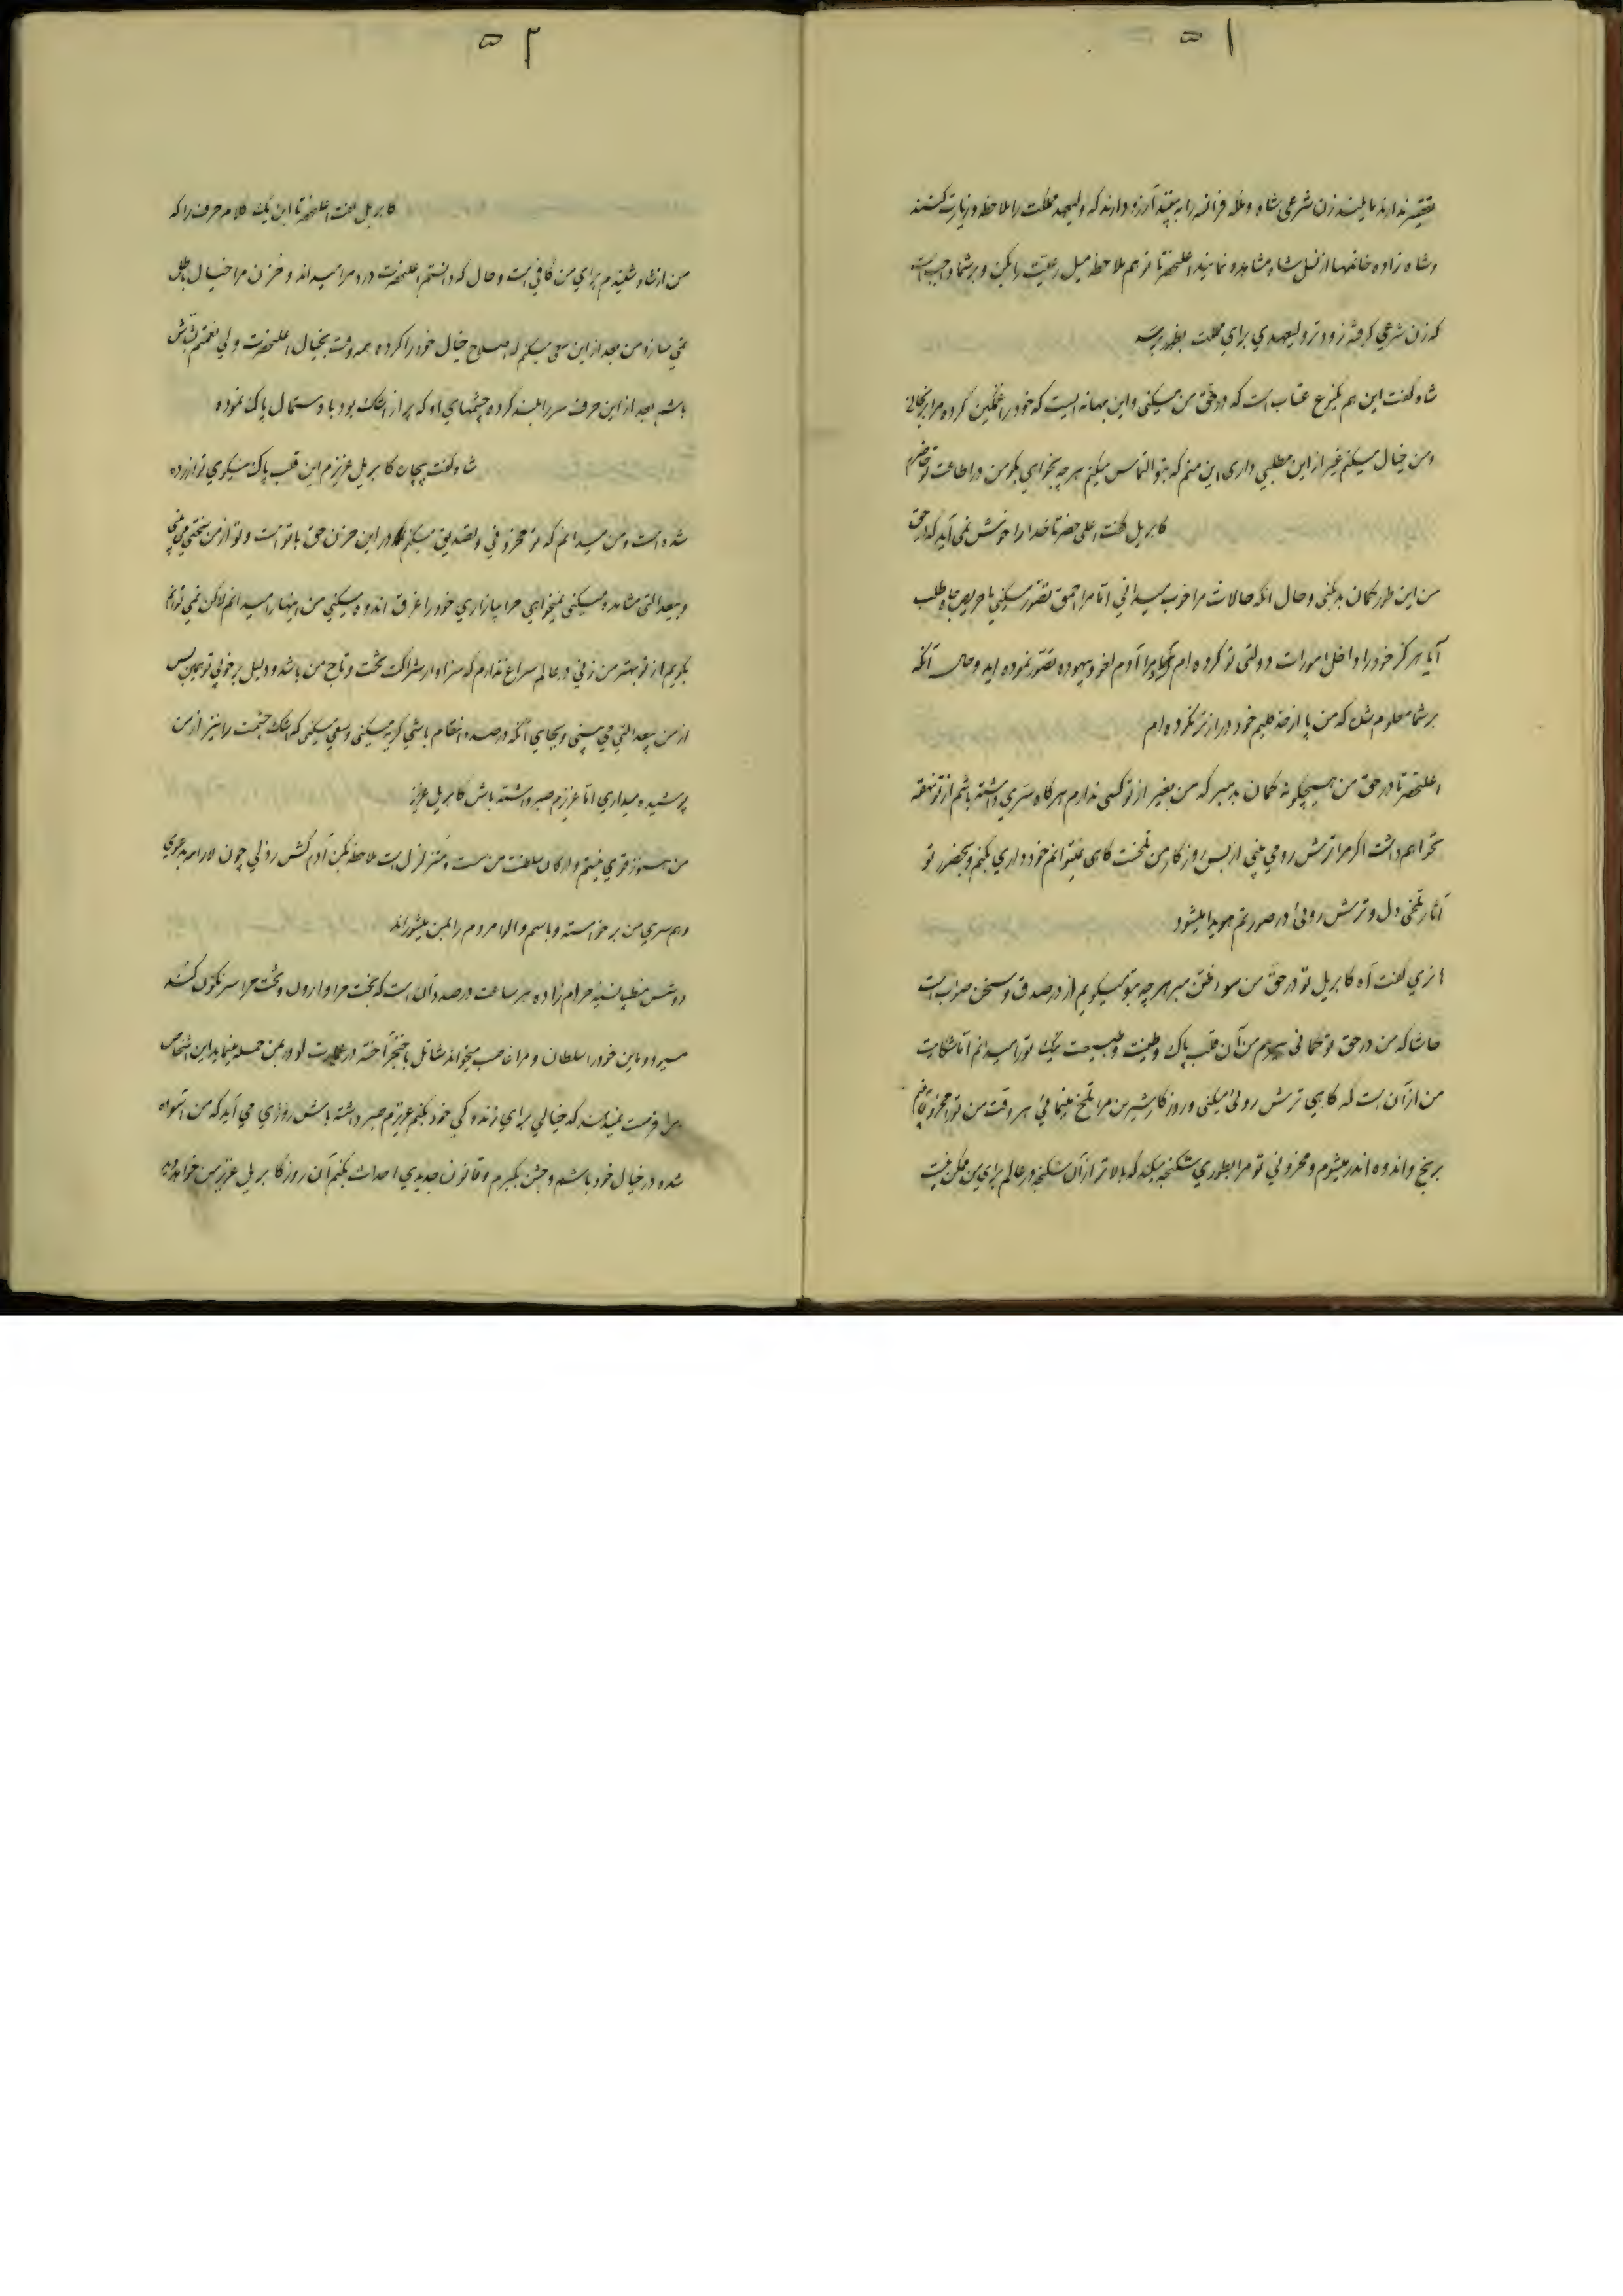 ۵۱
تقصیر ندارند مایلند زن شرعی شاه و ملکه فرانسه را به بینند آرزو دارند که ولیعهد مملکت را ملاحظه و زیارت کنند
و شاه زاده خانمها از نسل شاه مشاهده نمایند اعلیحضرتا تو هم ملاحظه میل رعیت را بکن و بر شما واجب است
که زن شرعی گرفته زودتر ولیعهدی برای مملکت بظهور برسد
شاه گفت این هم یکنوع عتاب است که در حق من میکنی و این بهانه ایست که خود را غمگین کرده مرا برنجانی
و من خیال میکنم غیر از این مطلبی داری این منم که بتو التماس میکنم هر چه بخواهی بکو من در اطاعت تو حاضرم
کابریل گفت اعلی حضرتا خدا را خوش نمی آید که در حق
من این طور گمان بد بکنی و حال انکه حالات مرا خوب میدانی اتا مرا احمق تصور میکنی یا حریص جاه طلب
آیا هرگز خود را داخل امورات دولتی تو کرده ام آیا چرا آدم لغو و بیهوده تصور نموده اید و حال آنکه
بر شما معلوم شد که من پا از حد کلیم خود دراز تر نکرده ام
اعلیحضرتا در حق من هیچگونه گمان بد مبر که من بغیر از تو کسی ندارم هر گاه سری داشته باشم از تو نهفته
نخواهم داشت اگر مرا ترش رو می بینی از بس روزگار من تلخست گاهی نمیتوانم خود داری بکنم و بحضور تو
آثار تلخی دل و ترش روئی در صورتم هویدا میشود
هانری گفت آه کابریل تو در حق من سوء ظن مبر هر چه بتو میگویم از در صدق و سخن صوابست
حاشا که من در حق تو گمانی ببرم من آن قلب پاک و طینت و طبیعت نیک تو را میدانم اتا شکایت
من از آن است که گاهی ترش روئی میکنی و روزگار شیرین مرا تلخ مینمائی هر وقت من تو را محزون یافتم
برنج و اندوه اندر میشوم و محزونی تو مرا بطوری شکنجه میکند که بالاتر از آن شکنجه در عالم برای من ممکن نیست
۵۲
کابریل گفت اعلیحضرتا این یک کلام حرف را که
من از شاه شنیدم برای من کافی است و حال که دانستم اعلیحضرت درد مرا میداند و حزن مرا خیال باطل
نمی سازد من بعد از این سعی میکنم که اصلاح خیال خود را کرده همه وقت بخیال اعلیحضرت ولی نعمتم بشاش
باشم بعد از این حرف سر را بلند کرده چشمهای او که پر از اشک بود با دستمال پاک نموده
شاه گفت بیجان کابریل عزیزم این قلب پاک نیکوی تو آزرده
شده است و من میدانم که تو محزونی و تصدیق میکنم که در این حزن حق با تو است و تو از من سختی می بینی
و بیعدالتی مشاهده میکنی نمیخواهی مرا بیازاری خود را غرق اندوه میکنی من اینها را میدانم لاکن نمی توانم
بگویم از تو بهتر من زنی در عالم سراغ ندارم که سزاوار شراکت تخت و تاج من باشد و دلیل بر خوبی تو همین بس
از من بیعدالتی می بینی و بجای آنکه در صدد انتقام باشی گریه میکنی و سعی میکنی که اشک چشمت را نیز از من
پوشیده میداری اتا عزیزم صبر داشته باش کابریل عزیز
من هنوز قوی نیستم و ارکان سلطنت من سست و متزلزل است ملاحظه بکن آدم کش رذلی چون لارامه بدعوی
و هم سری من برخواسته و باسم والوا مردم را بمن میشوراند
دوشس منطپانسیه حرام زاده هر ساعت در صدد آن است که بخت مرا وارون و تخت مرا سرنگون کند
میرود باین خود را سلطان و مرا غاصب میخواند شاتل با خنجر آخته در عمارت لوور بمن حمله مینماید این اشخاص
مرا فرصت نمیدهند که خیالی برای زنده گی خود بکنم عزیزم صبر داشته باش روزی می آید که من آسوده
شده در خیال خود باشم و جشن بگیرم و قانون جدیدی احداث بکنم آن روز کابریل عزیز من خواهد دید